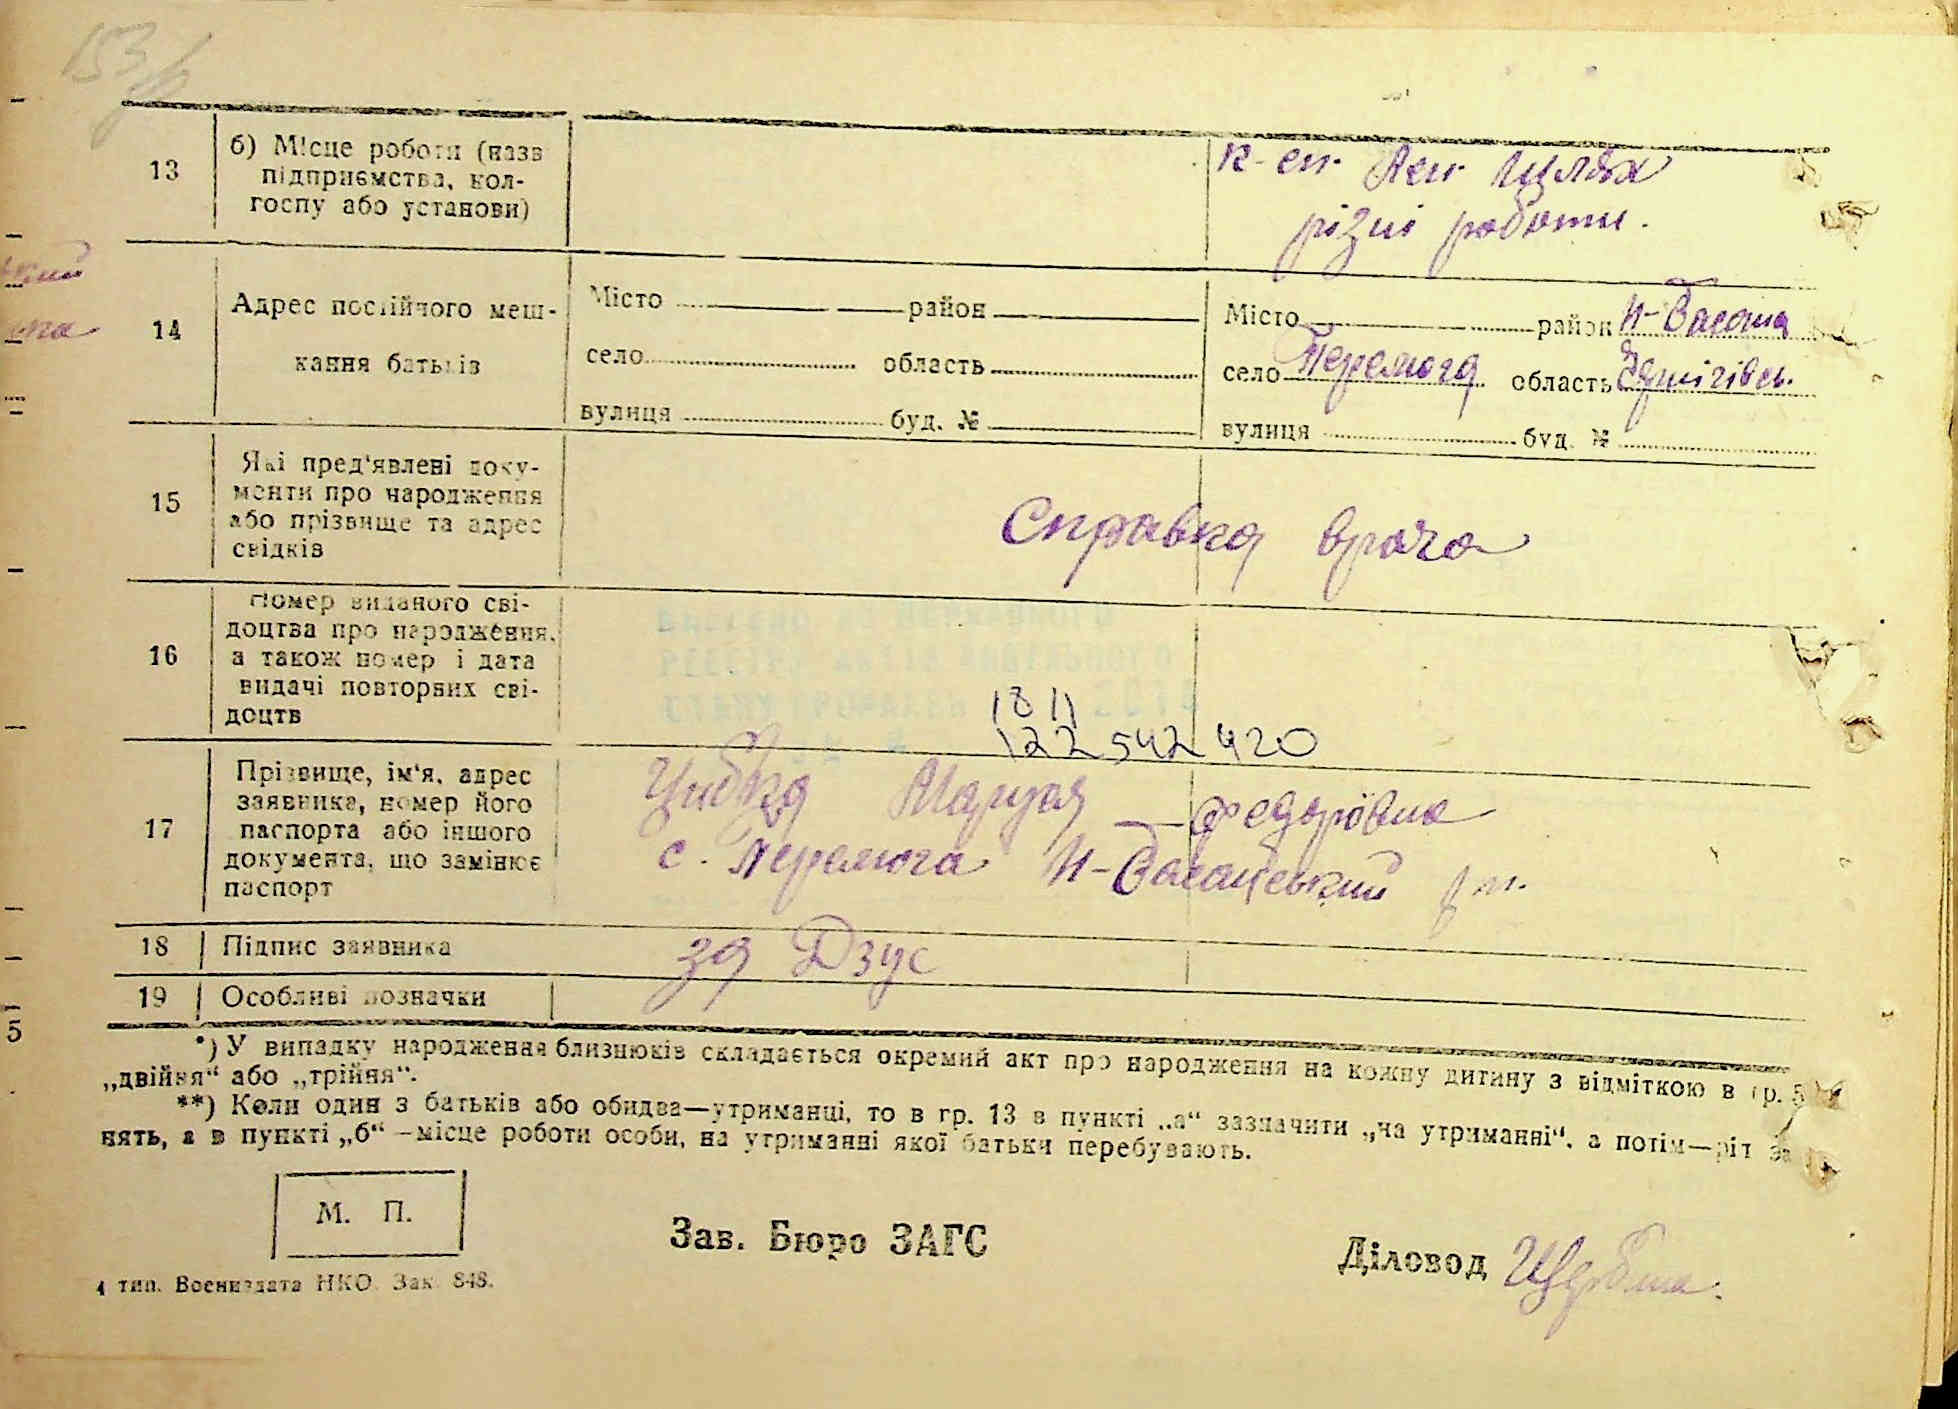 13
б) Місце роботи (назв
підприємства, кол-
госпу або установи)
к-сп. Лен. Шлях
різні роботи.
14
Адрес постійного меш-
кання батьків
Місто район
село область
вулиця буд. №
Місто район Н-Басань
село Перемога область Чернігівсь.
вулиця буд. №
15
Які пред'явлені доку-
менти про народження
або прізвище та адрес
свідків
Справка врача
16
Номер виданого сві-
доцтва про народження,
а також номер і дата
видачі повторних сві-
доцтв
ВНЕСЕНО ДО ДЕРЖАВНОГО
РЕЄСТРУ АКТІВ ЦИВІЛЬНОГО
СТАНУ ГРОМАДЯН
18 11
122 542 420
17
Прізвище, ім'я, адрес
заявника, номер його
паспорта або іншого
документа, що замінює
паспорт
Цибка Маруся Федорівна
с. Перемога Н-Басанський р-н.
18
Підпис заявника
за Дзус
19
Особливі позначки
*) У випадку народження близнюків складається окремий акт про народження на кожну дитину з відміткою в гр. 5
„двійня“ або „трійня“.
**) Коли один з батьків або обидва—утриманці, то в гр. 13 в пункті „а“ зазначити „на утриманні“, а потім—ріт за
нять, а в пункті „б“ —місце роботи особи, на утриманні якої батьки перебувають.
М. П.
Зав. Бюро ЗАГС
Діловод
4 тип. Воениздата НКО. Зак. 848.
5